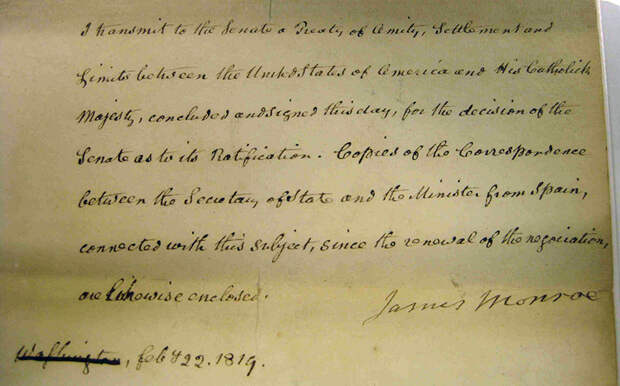 I transmit to the Senate a Treaty of Amity, Settlement and
Limits between the United States of America and His Catholick
Majesty, concluded and signed this day, for the decision of the
Senate as to its Ratification. Copies of the Correspondence
between the Secretary of State and the Minister from Spain,
connected with this subject, since the renewal of the negociation,
are likewise enclosed.
James Monroe
Washington, Feby 22. 1819.